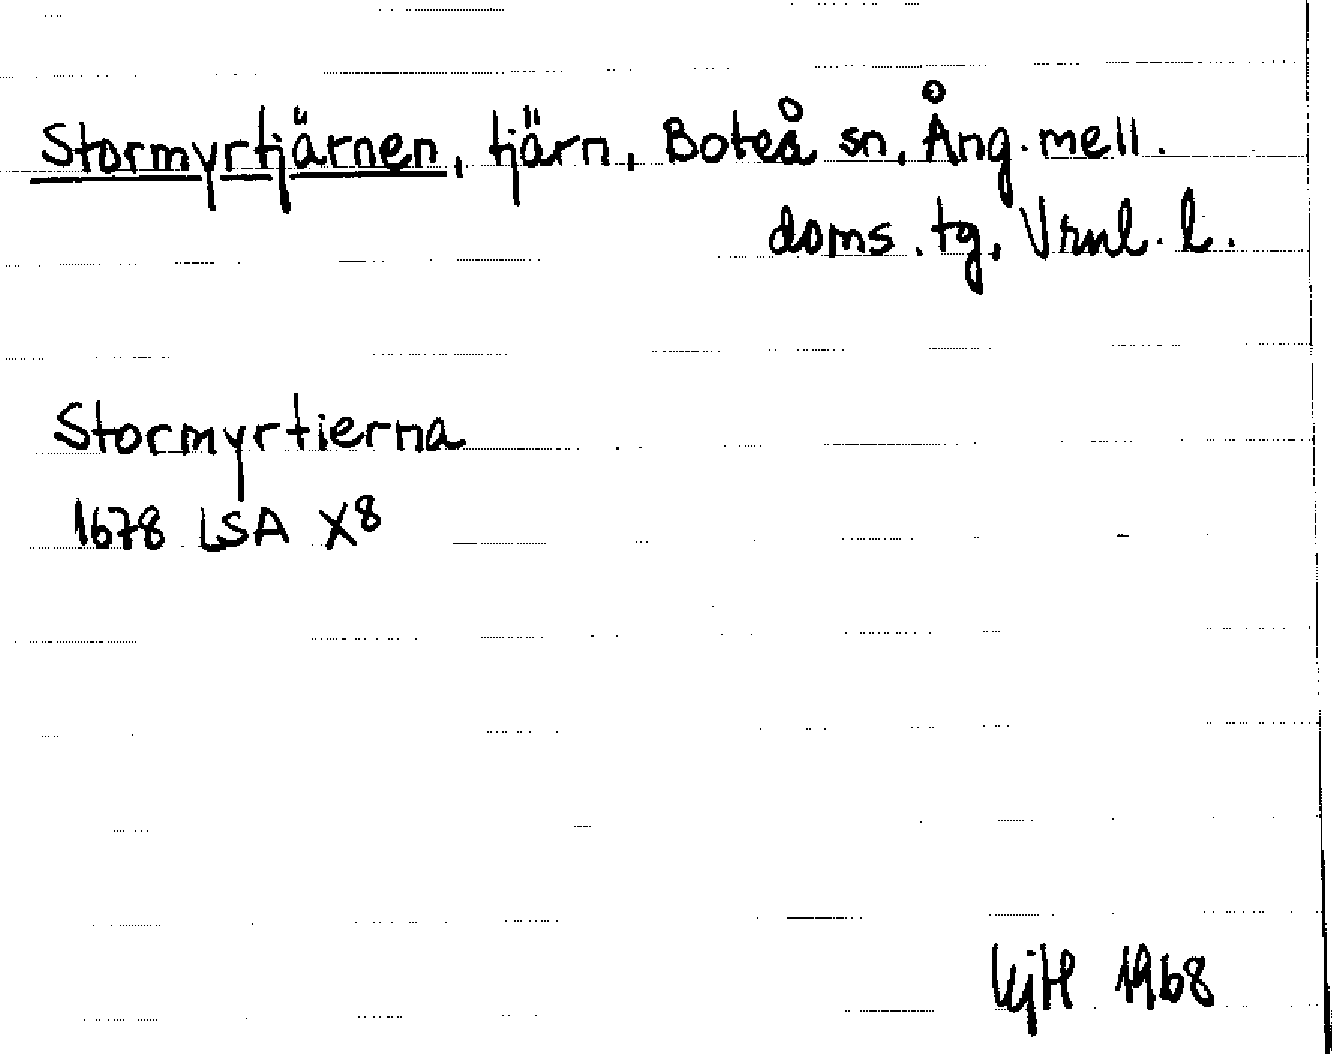 Stormyrtjärnen, tjärn, Boteå sn, Ång. mell.
doms. tg, Vrnl. l.
Stormyrtierna
1678 LSA X8
1968